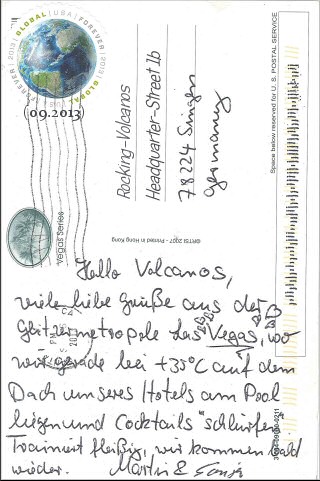 GLOBAL | USA | FOREVER
2013
(09.2013)
Vegas Series
Rocking-Volcanos
Headquarter-Street 1b
78224 Singen
Germany
Space below reserved for U.S. POSTAL SERVICE
©PITSI 2007 - Printed in Hong Kong
Hallo Volcanos,
viele liebe Grüße aus der
Glitzermetropole Las Vegas, wo
wir gerade bei +35°C auf dem
Dach unseres Hotels am Pool
liegen und Cocktails "schlürfen".
Trainiert fleißig, wir kommen bald
wieder. Martin & Tanja